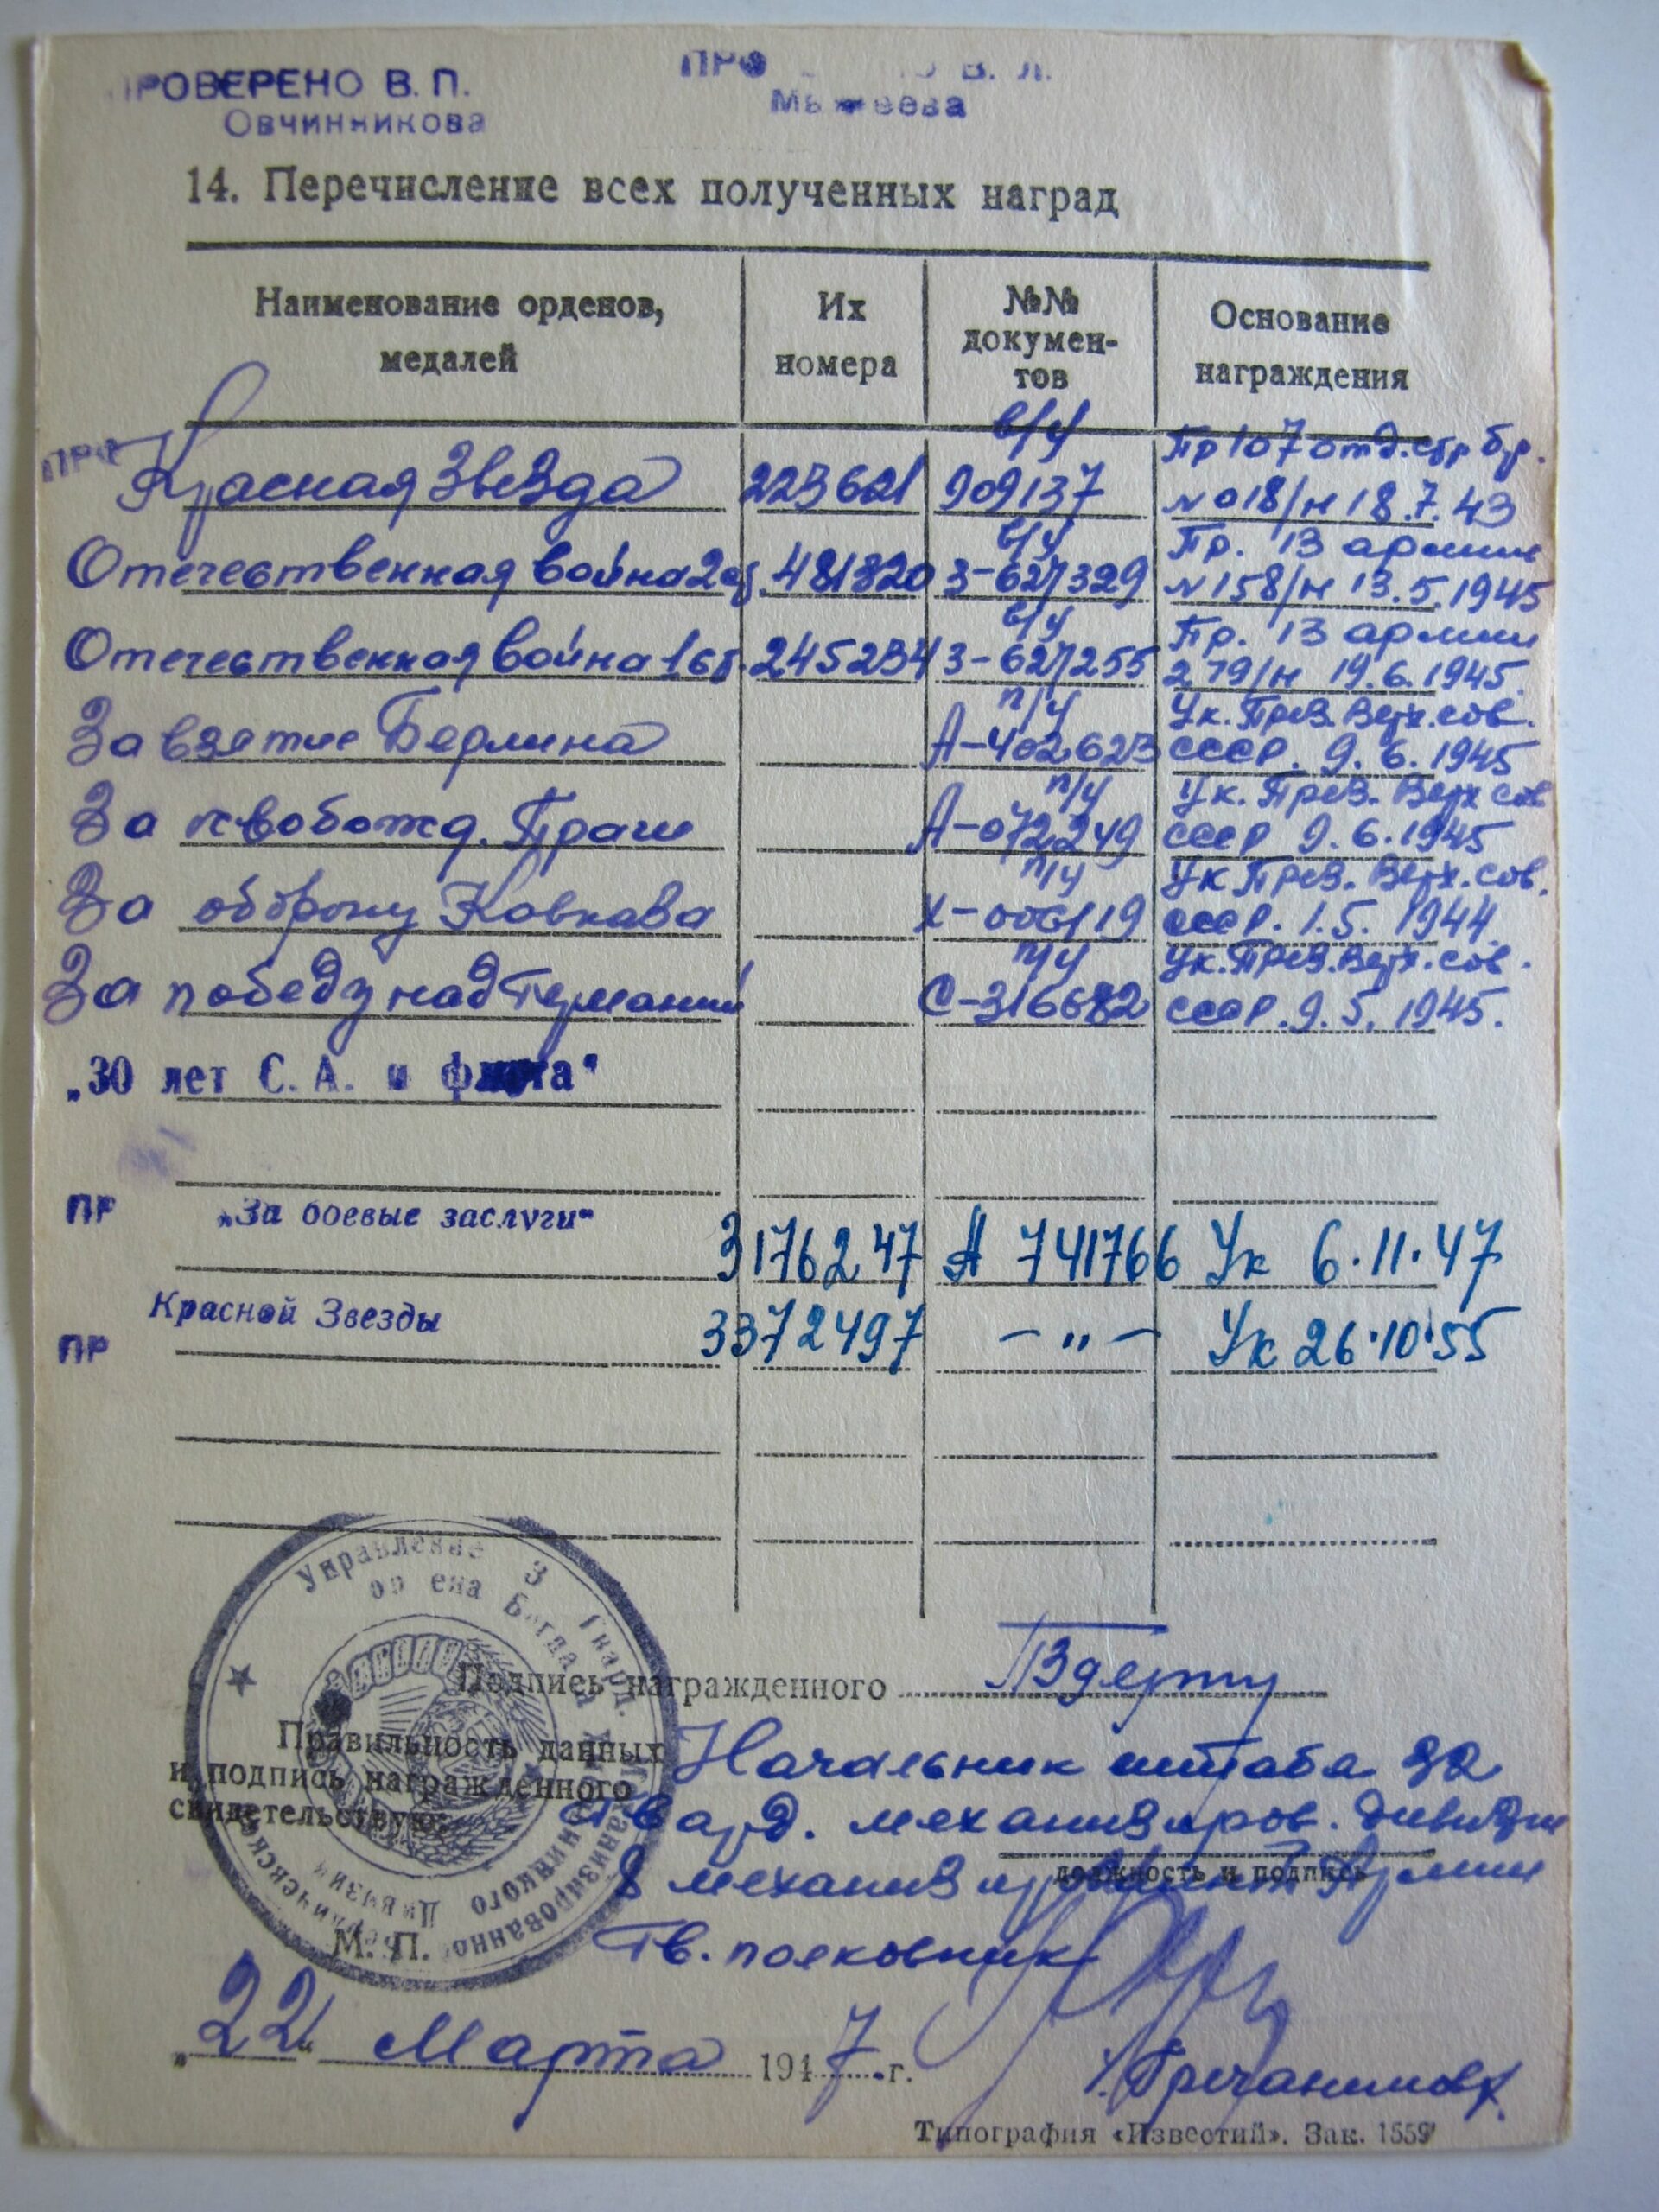 ПРОВЕРЕНО В. П.
Овчинникова
14. Перечисление всех полученных наград
Наименование орденов, медалей
Их номера
№№ документов
Основание награждения
в/у Пр 107 отд. стр бр.
Красная Звезда 223621 909137 № 018/н 18.7.43
в/у Пр. 13 армии
Отечественная война 2 ст. 481320 З-627329 № 158/н 13.5.1945
в/у Пр. 13 армии
Отечественная война 1 ст. 245234 З-627255 279/н 19.6.1945.
п/у Ук. През. Верх. сов.
За взятие Берлина А-402623 СССР. 9.6.1945
п/у Ук. През. Верх сов
За освобожд. Праги А-072249 СССР 9.6.1945
п/у Ук През. Верх. сов.
За оборону Кавказа СССР. 1.5.1944
п/у Ук. През. Верх. сов.
За победу над Германией С-316682 СССР. 9.5.1945.
„30 лет С. А. и флота"
ПР „За боевые заслуги" 3176247 А 741766 Ук 6.11.47
Красной Звезды 3372497 -"- Ук 26.10.55
ПР
Управление 3 Гвард.
Подпись награжденного
Правильность данных
и подпись награжденного
свидетельствую:
Начальник штаба
Гвард. механизиров. дивизии
должность и подпись
8 механизированной Армии
Гв. полковник
М. П.
„22" Марта 1947 г.
Типография «Известий». Зак. 1559